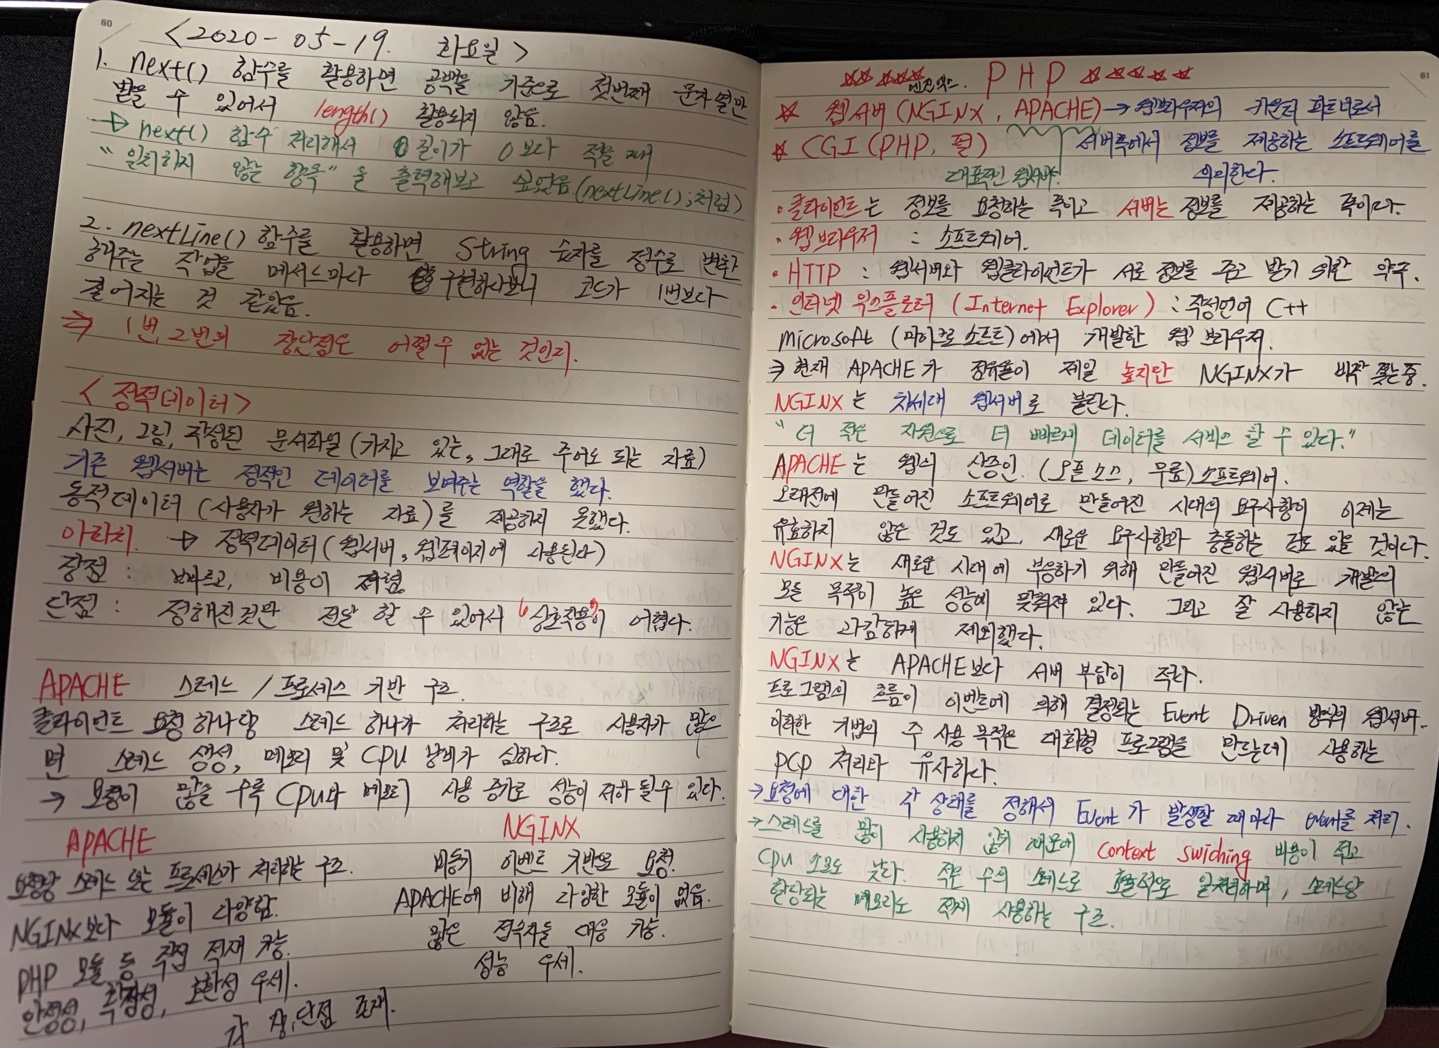 60
<2020-05-19. 화요일>
1. next() 함수를 활용하면 공백을 기준으로 첫번째 문자열만
받을 수 있어서 length() 활용되지 않음.
→ next() 함수 처리해서 길이가 0보다 적을 때
"일치하지 않는 항목"을 출력해보고 싶었음(nextLine();처럼)
2. nextLine() 함수를 활용하면 String 숫자를 정수로 변환
해주는 작업을 메서드마다 구현하다보니 코드가 1번보다
길어지는 것 같았음.
⇒ 1번, 2번의 장단점은 어쩔 수 없는 것인지.
<정적데이터>
사진, 그림, 작성된 문서파일(가지고 있는, 그대로 주어도 되는 자료)
기존 웹서버는 정적인 데이터를 보여주는 역할을 했다.
동적데이터(사용자가 원하는 자료)를 제공하지 못했다.
아파치 → 정적데이터(웹서버, 웹페이지에 사용된다)
장점 : 빠르고, 비용이 저렴
단점 : 정해진것만 전달 할 수 있어서 '상호작용'이 어렵다.
APACHE 스레드 / 프로세스 기반 구조.
클라이언트 요청 하나당 스레드 하나가 처리하는 구조로 사용자가 많으
면 스레드 생성, 메모리 및 CPU 낭비가 심하다.
→ 요청이 많을 수록 CPU와 메모리 사용 증가로 성능이 저하 될수 있다.
APACHE
요청당 스레드 또는 프로세스가 처리하는 구조.
NGINX보다 모듈이 다양함.
PHP 모듈 등 직접 적재 가능.
안정성, 확장성, 호환성 우세.
NGINX
비동기 이벤트 기반으로 요청.
APACHE에 비해 다양한 모듈이 없음.
많은 접속자들 대응 가능.
성능 우세.
각 장,단점 존재.
61
☆☆ ☆☆☆ PHP ☆☆☆☆☆
엔진엑스.
☆ 웹서버(NGINX, APACHE) → 웹브라우저의 카운터 파트너로서
☆ CGI(PHP, 펄) 서버측에서 정보를 제공하는 소프트웨어를
대표적인 웹서버. 의미한다.
· 클라이언트는 정보를 요청하는 쪽이고 서버는 정보를 제공하는 쪽이다.
· 웹 브라우저 : 소프트웨어.
· HTTP : 웹서버와 웹클라이언트가 서로 정보를 주고 받기 위한 약속.
· 인터넷 익스플로터 (Internet Explorer) : 작성언어 C++
microsoft (마이크로 소프트)에서 개발한 웹 브라우저.
⇒ 현재 APACHE가 점유율이 제일 높지만 NGINX가 바짝 쫓는중.
NGINX는 차세대 웹서버로 불린다.
"더 적은 자원으로 더 빠르게 데이터를 서비스 할 수 있다."
APACHE는 웹의 산증인. (오픈소스, 무료)소프트웨어.
오래전에 만들어진 소프트웨어로 만들어진 시대의 요구사항이 이제는
유효하지 않은 것도 있고, 새로운 요구사항과 충돌하는 점도 있을 것이다.
NGINX는 새로운 시대에 부응하기 위해 만들어진 웹서버로 개발의
모든 목적이 높은 성능에 맞춰져 있다. 그리고 잘 사용하지 않는
기능은 과감하게 제외했다.
NGINX는 APACHE보다 서버 부담이 적다.
프로그램의 흐름이 이벤트에 의해 결정되는 Event Driven 방식의 웹서버.
이러한 기법의 주 사용 목적은 대화형 프로그램을 만드는데 사용하는
PCP 처리와 유사하다.
→ 요청에 대한 각 상태를 정해서 Event가 발생할 때마다 event를 처리.
→ 스레드를 많이 사용하지 않기 때문에 context swiching 비용이 적고
CPU 소모도 낮다. 적은 수의 스레드로 효율적으로 일처리하며, 스레드당
할당되는 메모리도 적게 사용하는 구조.